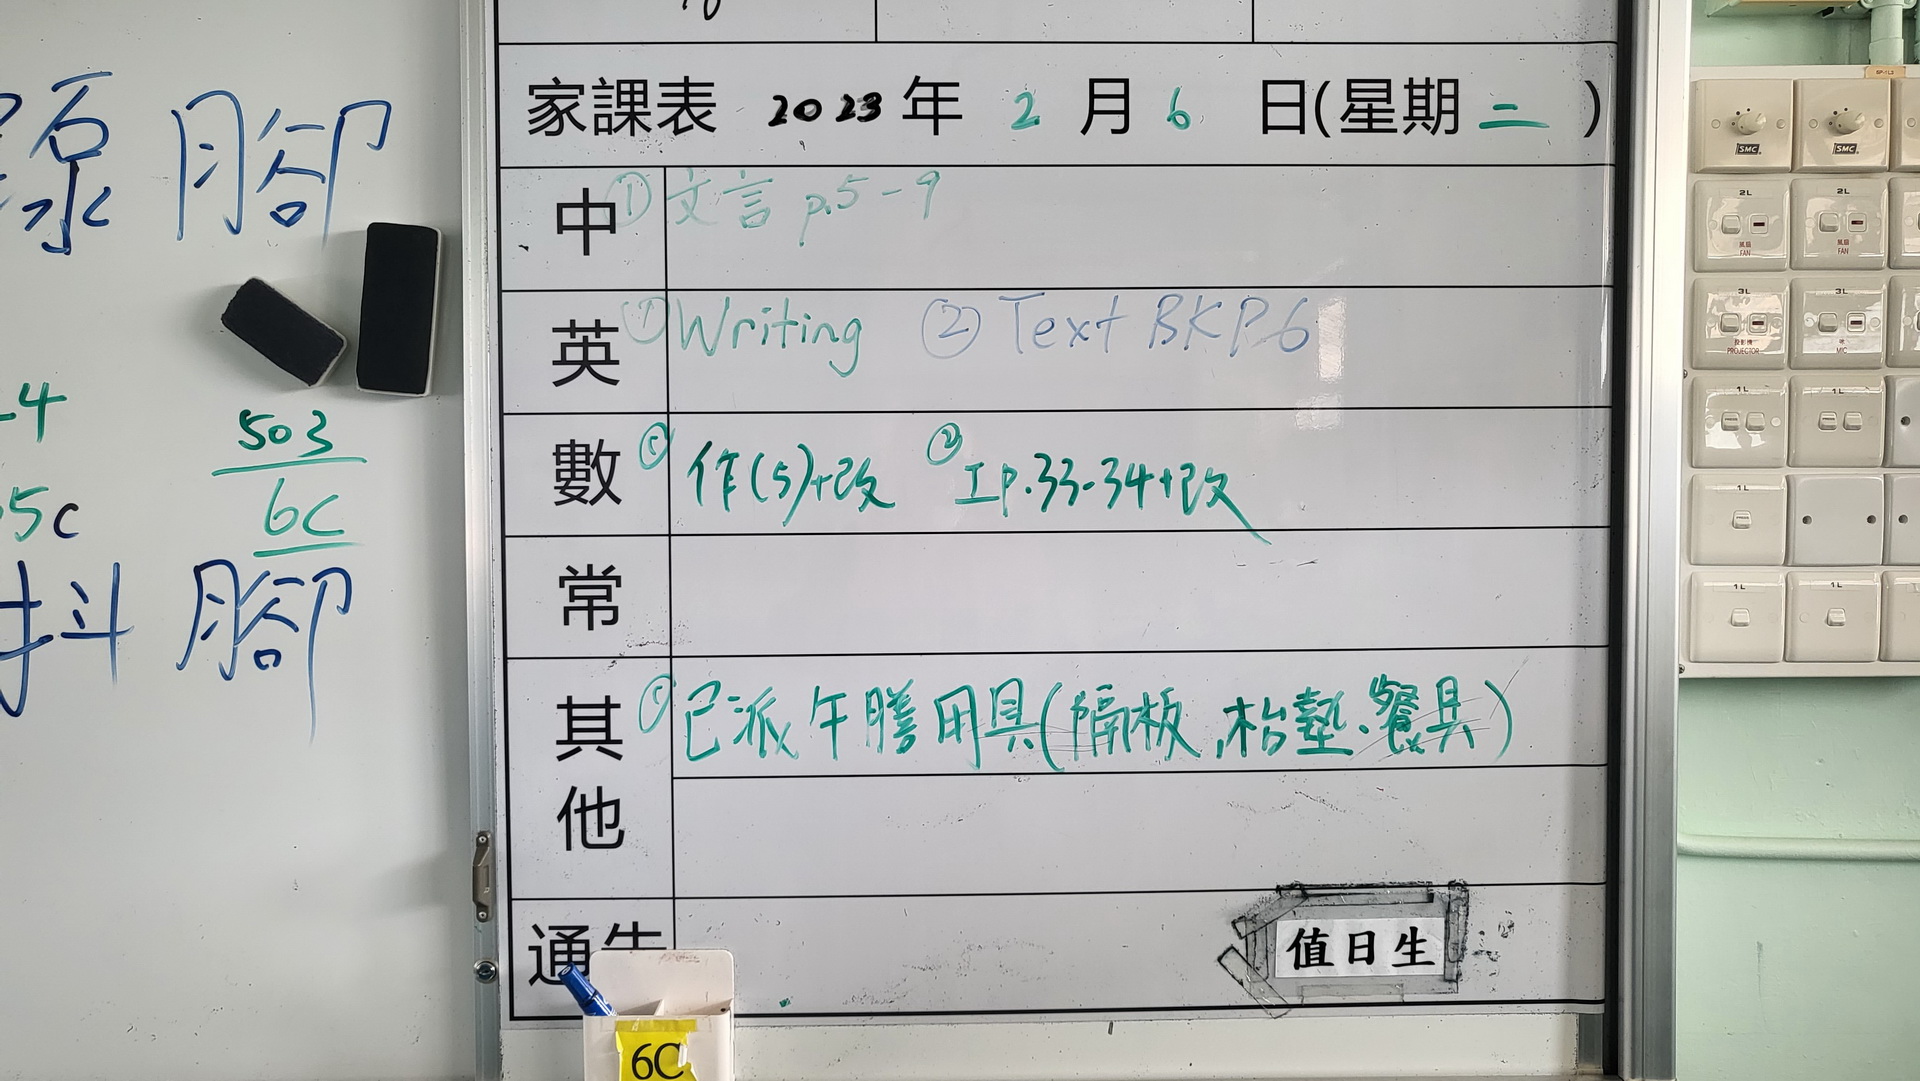 家課表 2023 年 2 月 6 日(星期二)
中 ①文言 p.5-9
英 ①Writing ②Text BKP6
數 ① 作(5)+改 ② 工p.33-34+改
常
其他 ①已派午膳用具(隔板,枱墊、餐具)
通告
值日生
6C
腳
503
6C
-4
5c
抖腳
SMC
SMC
2L
2L
風扇
FAN
風扇
FAN
3L
3L
投影機
PROJECTOR
咪
MIC
1L
1L
1L
1L
1L